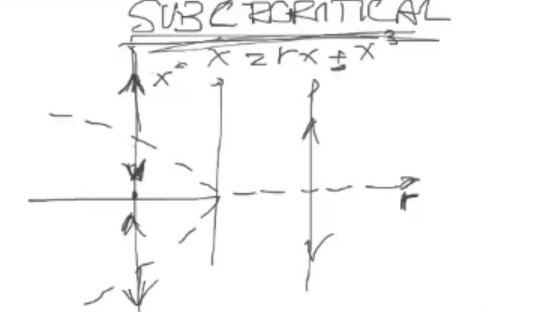 SUBCRCRITICAL
x
x° x = rx ± x³
r